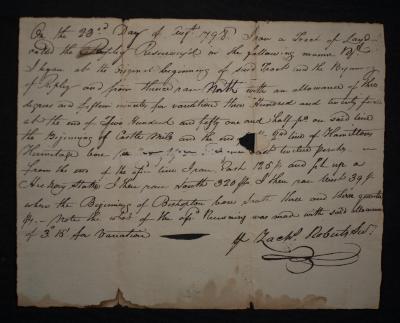 On the 23rd Day of Augt 1798 I ran a Tract of Land
called the Ripley Resurvey'd in the following manner Vizt
I began at the original beginning of said Tract and the Beginning
of Ripley and from thence ran North with an allowance of three
degrees and fifteen minutes for variation three Hundred and twenty five
at the end of Two Hundred and fifty one and half ps on said line
the Beginning of Castle and the end 2nd line of Hamiltons
Hermitage bore
from the end of the afsd line I ran East 128 ps and set up a
Hickory Stake I then ran South 320 ps I then ran West 39 ps
where the Beginning of bore South three and three quarter
ps. Note the of the afsd was made with said allowance
of 3° 15' for Variation
Zachs Roberts